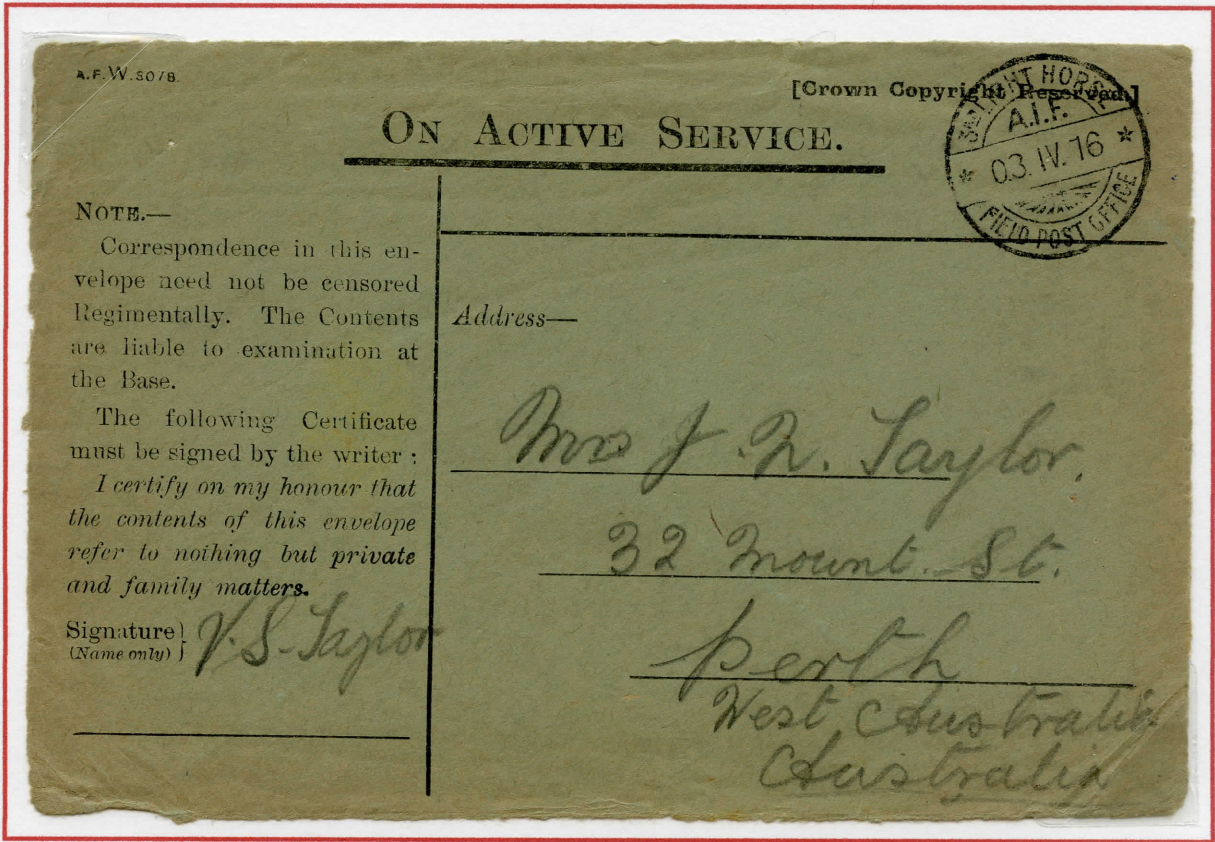 A.F.W.3078.
[Crown Copyright Reserved.]
ON ACTIVE SERVICE.
3RD LIGHT HORSE
A.I.F.
* 03. IV. 16 *
FIELD POST OFFICE
NOTE.—
Correspondence in this en-
velope need not be censored
Regimentally. The Contents
are liable to examination at
the Base.
The following Certificate
must be signed by the writer :
I certify on my honour that
the contents of this envelope
refer to nothing but private
and family matters.
Signature }
(Name only) }
V. S. Taylor
Address—
Mrs J. N. Taylor.
32 Mount. St.
Perth
West Australia
Australia